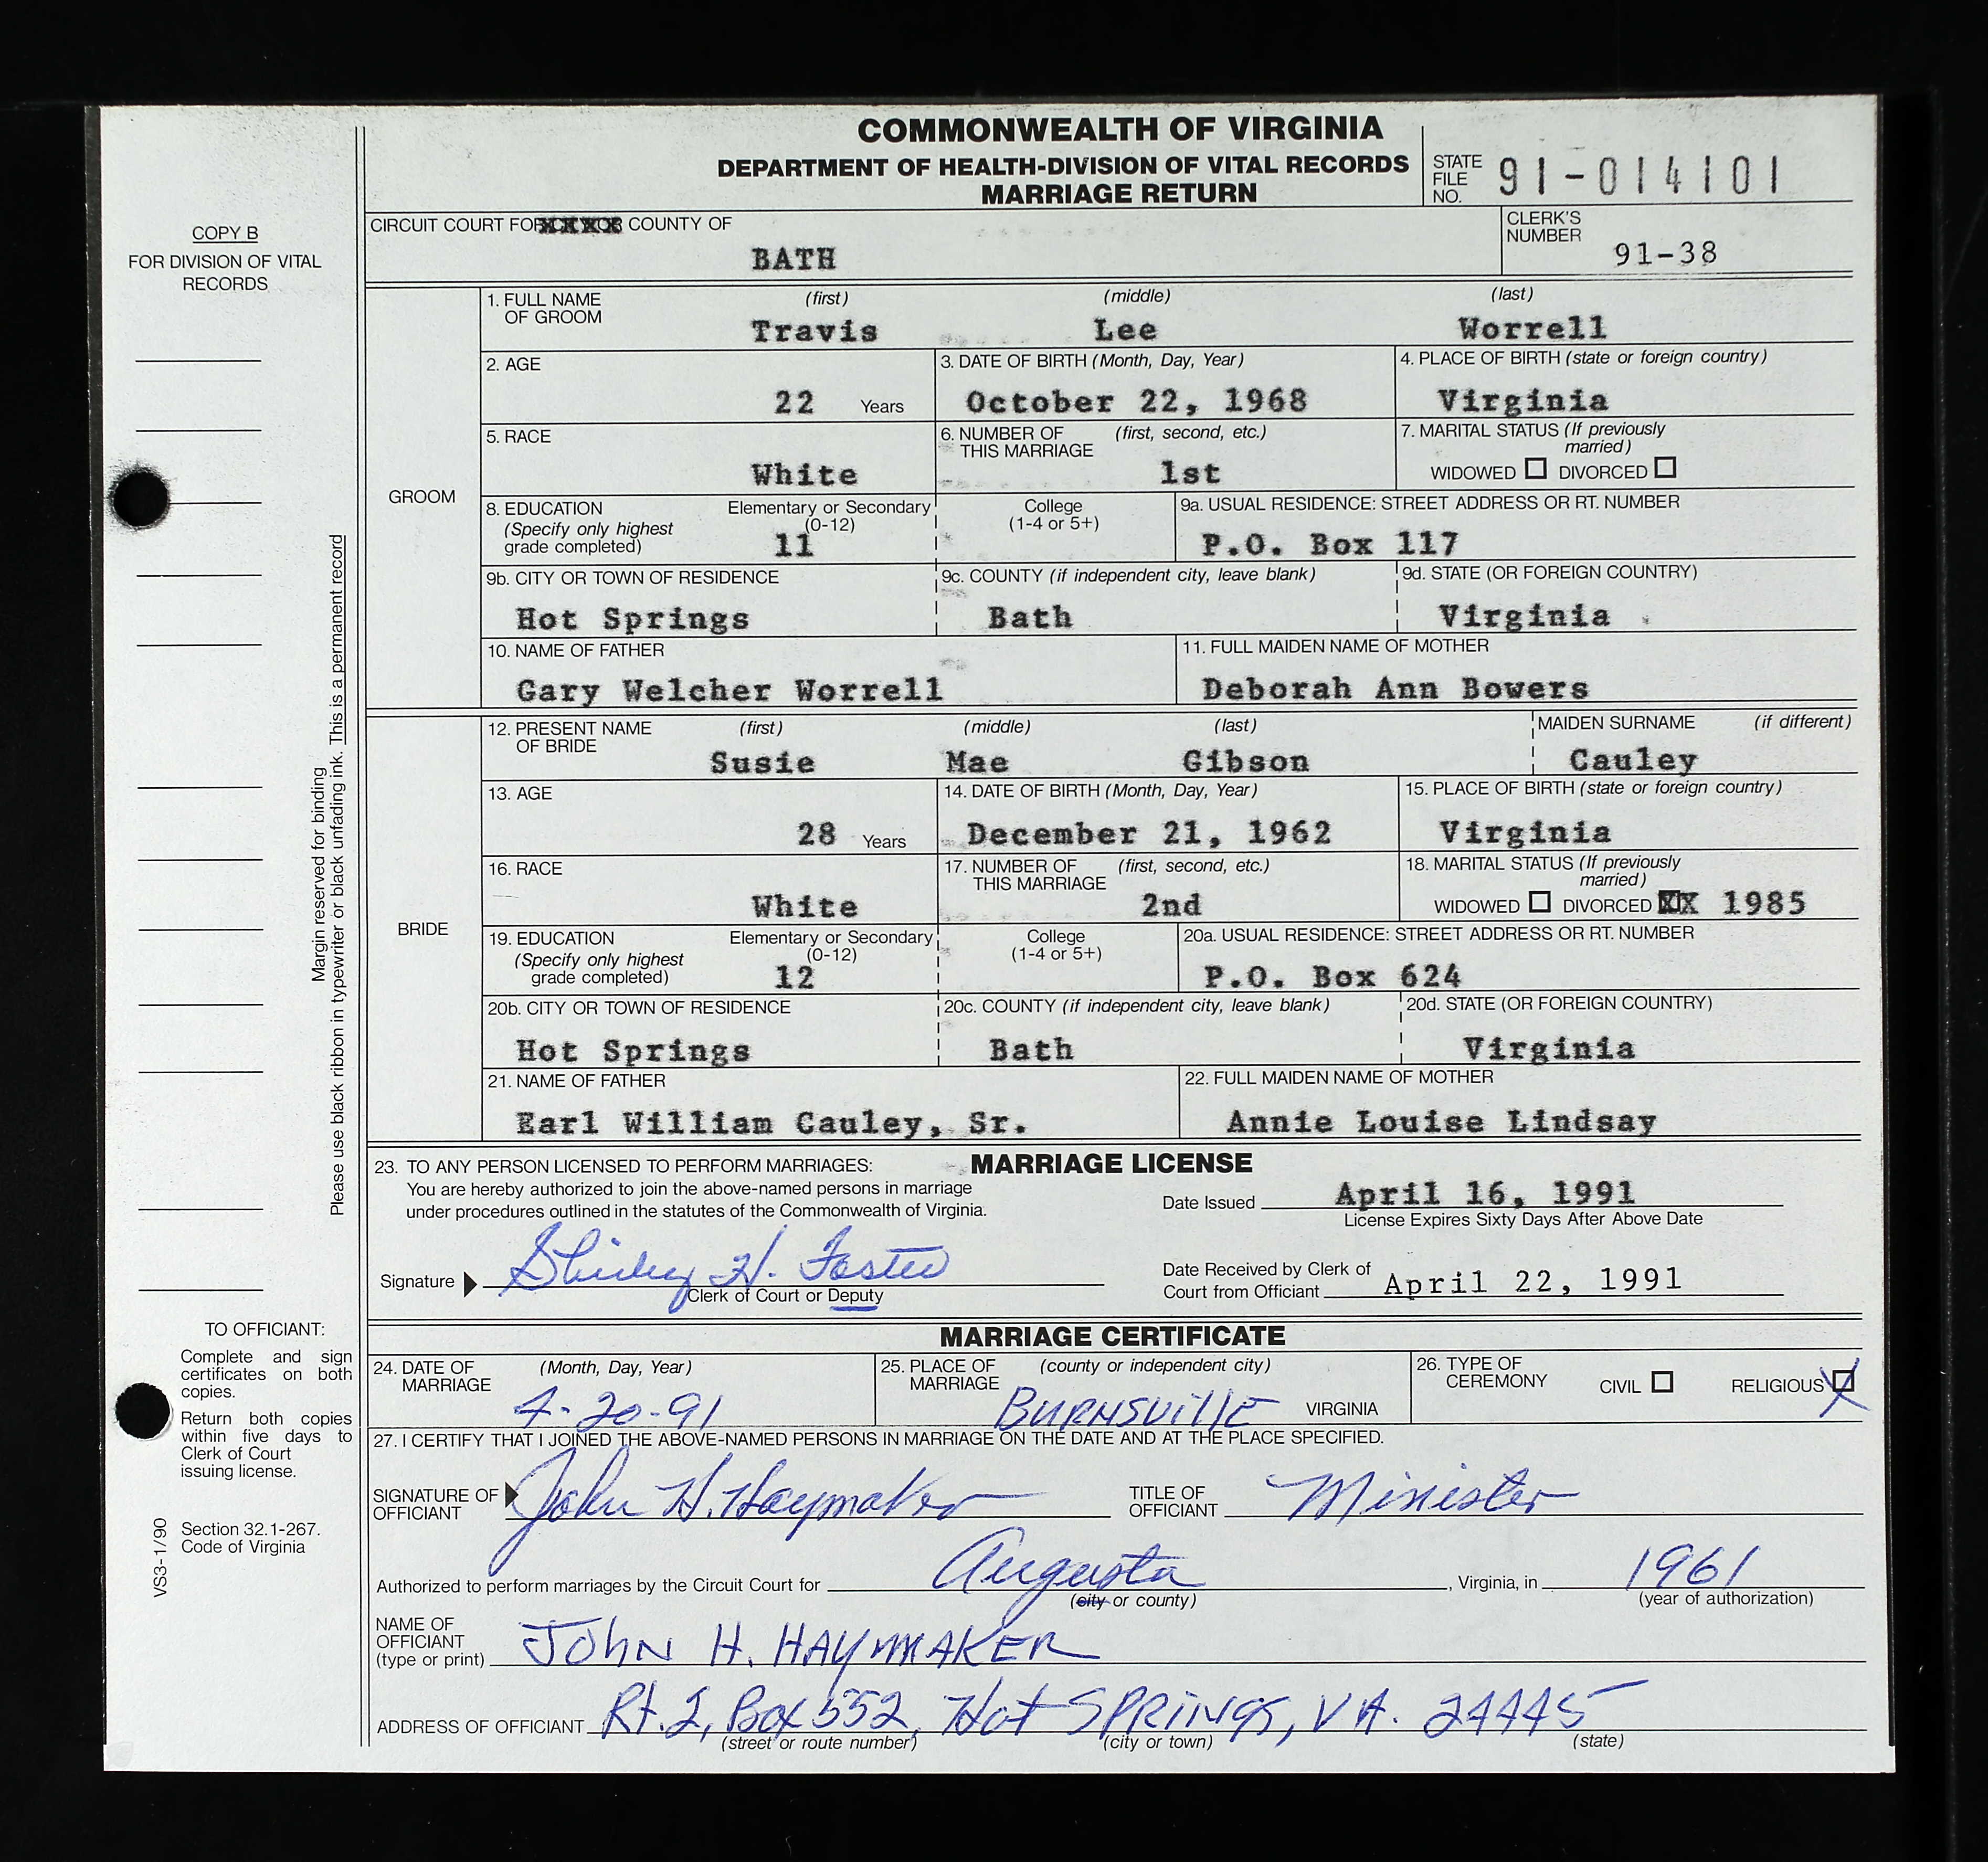 COMMONWEALTH OF VIRGINIA
DEPARTMENT OF HEALTH-DIVISION OF VITAL RECORDS
MARRIAGE RETURN
STATE FILE NO. 91-014101
COPY B
FOR DIVISION OF VITAL RECORDS
CIRCUIT COURT FOR COUNTY OF
BATH
CLERK'S NUMBER
91-38
GROOM
1. FULL NAME OF GROOM (first) (middle) (last)
Travis Lee Worrell
2. AGE
22 Years
3. DATE OF BIRTH (Month, Day, Year)
October 22, 1968
4. PLACE OF BIRTH (state or foreign country)
Virginia
5. RACE
White
6. NUMBER OF THIS MARRIAGE (first, second, etc.)
1st
7. MARITAL STATUS (If previously married)
WIDOWED DIVORCED
8. EDUCATION (Specify only highest grade completed)
Elementary or Secondary (0-12)
11
College (1-4 or 5+)
9a. USUAL RESIDENCE: STREET ADDRESS OR RT. NUMBER
P.O. Box 117
9b. CITY OR TOWN OF RESIDENCE
Hot Springs
9c. COUNTY (if independent city, leave blank)
Bath
9d. STATE (OR FOREIGN COUNTRY)
Virginia
10. NAME OF FATHER
Gary Welcher Worrell
11. FULL MAIDEN NAME OF MOTHER
Deborah Ann Bowers
BRIDE
12. PRESENT NAME OF BRIDE (first) (middle) (last)
Susie Mae Gibson
MAIDEN SURNAME (if different)
Cauley
13. AGE
28 Years
14. DATE OF BIRTH (Month, Day, Year)
December 21, 1962
15. PLACE OF BIRTH (state or foreign country)
Virginia
16. RACE
White
17. NUMBER OF THIS MARRIAGE (first, second, etc.)
2nd
18. MARITAL STATUS (If previously married)
WIDOWED DIVORCED XX 1985
19. EDUCATION (Specify only highest grade completed)
Elementary or Secondary (0-12)
12
College (1-4 or 5+)
20a. USUAL RESIDENCE: STREET ADDRESS OR RT. NUMBER
P.O. Box 624
20b. CITY OR TOWN OF RESIDENCE
Hot Springs
20c. COUNTY (if independent city, leave blank)
Bath
20d. STATE (OR FOREIGN COUNTRY)
Virginia
21. NAME OF FATHER
Earl William Cauley, Sr.
22. FULL MAIDEN NAME OF MOTHER
Annie Louise Lindsay
Margin reserved for binding
Please use black ribbon in typewriter or black unfading ink. This is a permanent record
23. TO ANY PERSON LICENSED TO PERFORM MARRIAGES: MARRIAGE LICENSE
You are hereby authorized to join the above-named persons in marriage
under procedures outlined in the statutes of the Commonwealth of Virginia.
Date Issued April 16, 1991
License Expires Sixty Days After Above Date
Signature Shirley H. Foster
Clerk of Court or Deputy
Date Received by Clerk of
Court from Officiant April 22, 1991
MARRIAGE CERTIFICATE
24. DATE OF MARRIAGE (Month, Day, Year)
4-20-91
25. PLACE OF MARRIAGE (county or independent city)
BURNSVIllE VIRGINIA
26. TYPE OF CEREMONY CIVIL RELIGIOUS X
27. I CERTIFY THAT I JOINED THE ABOVE-NAMED PERSONS IN MARRIAGE ON THE DATE AND AT THE PLACE SPECIFIED.
SIGNATURE OF OFFICIANT John H. Haymaker
TITLE OF OFFICIANT Minister
Authorized to perform marriages by the Circuit Court for Augusta, Virginia, in 1961
(city or county) (year of authorization)
NAME OF OFFICIANT (type or print) JOhN H. HAYMAKER
ADDRESS OF OFFICIANT Rt. 2, Box 552, Hot SPRiNgS, VA. 24445
(street or route number) (city or town) (state)
TO OFFICIANT:
Complete and sign
certificates on both
copies.
Return both copies
within five days to
Clerk of Court
issuing license.
Section 32.1-267.
Code of Virginia
VS3-1/90